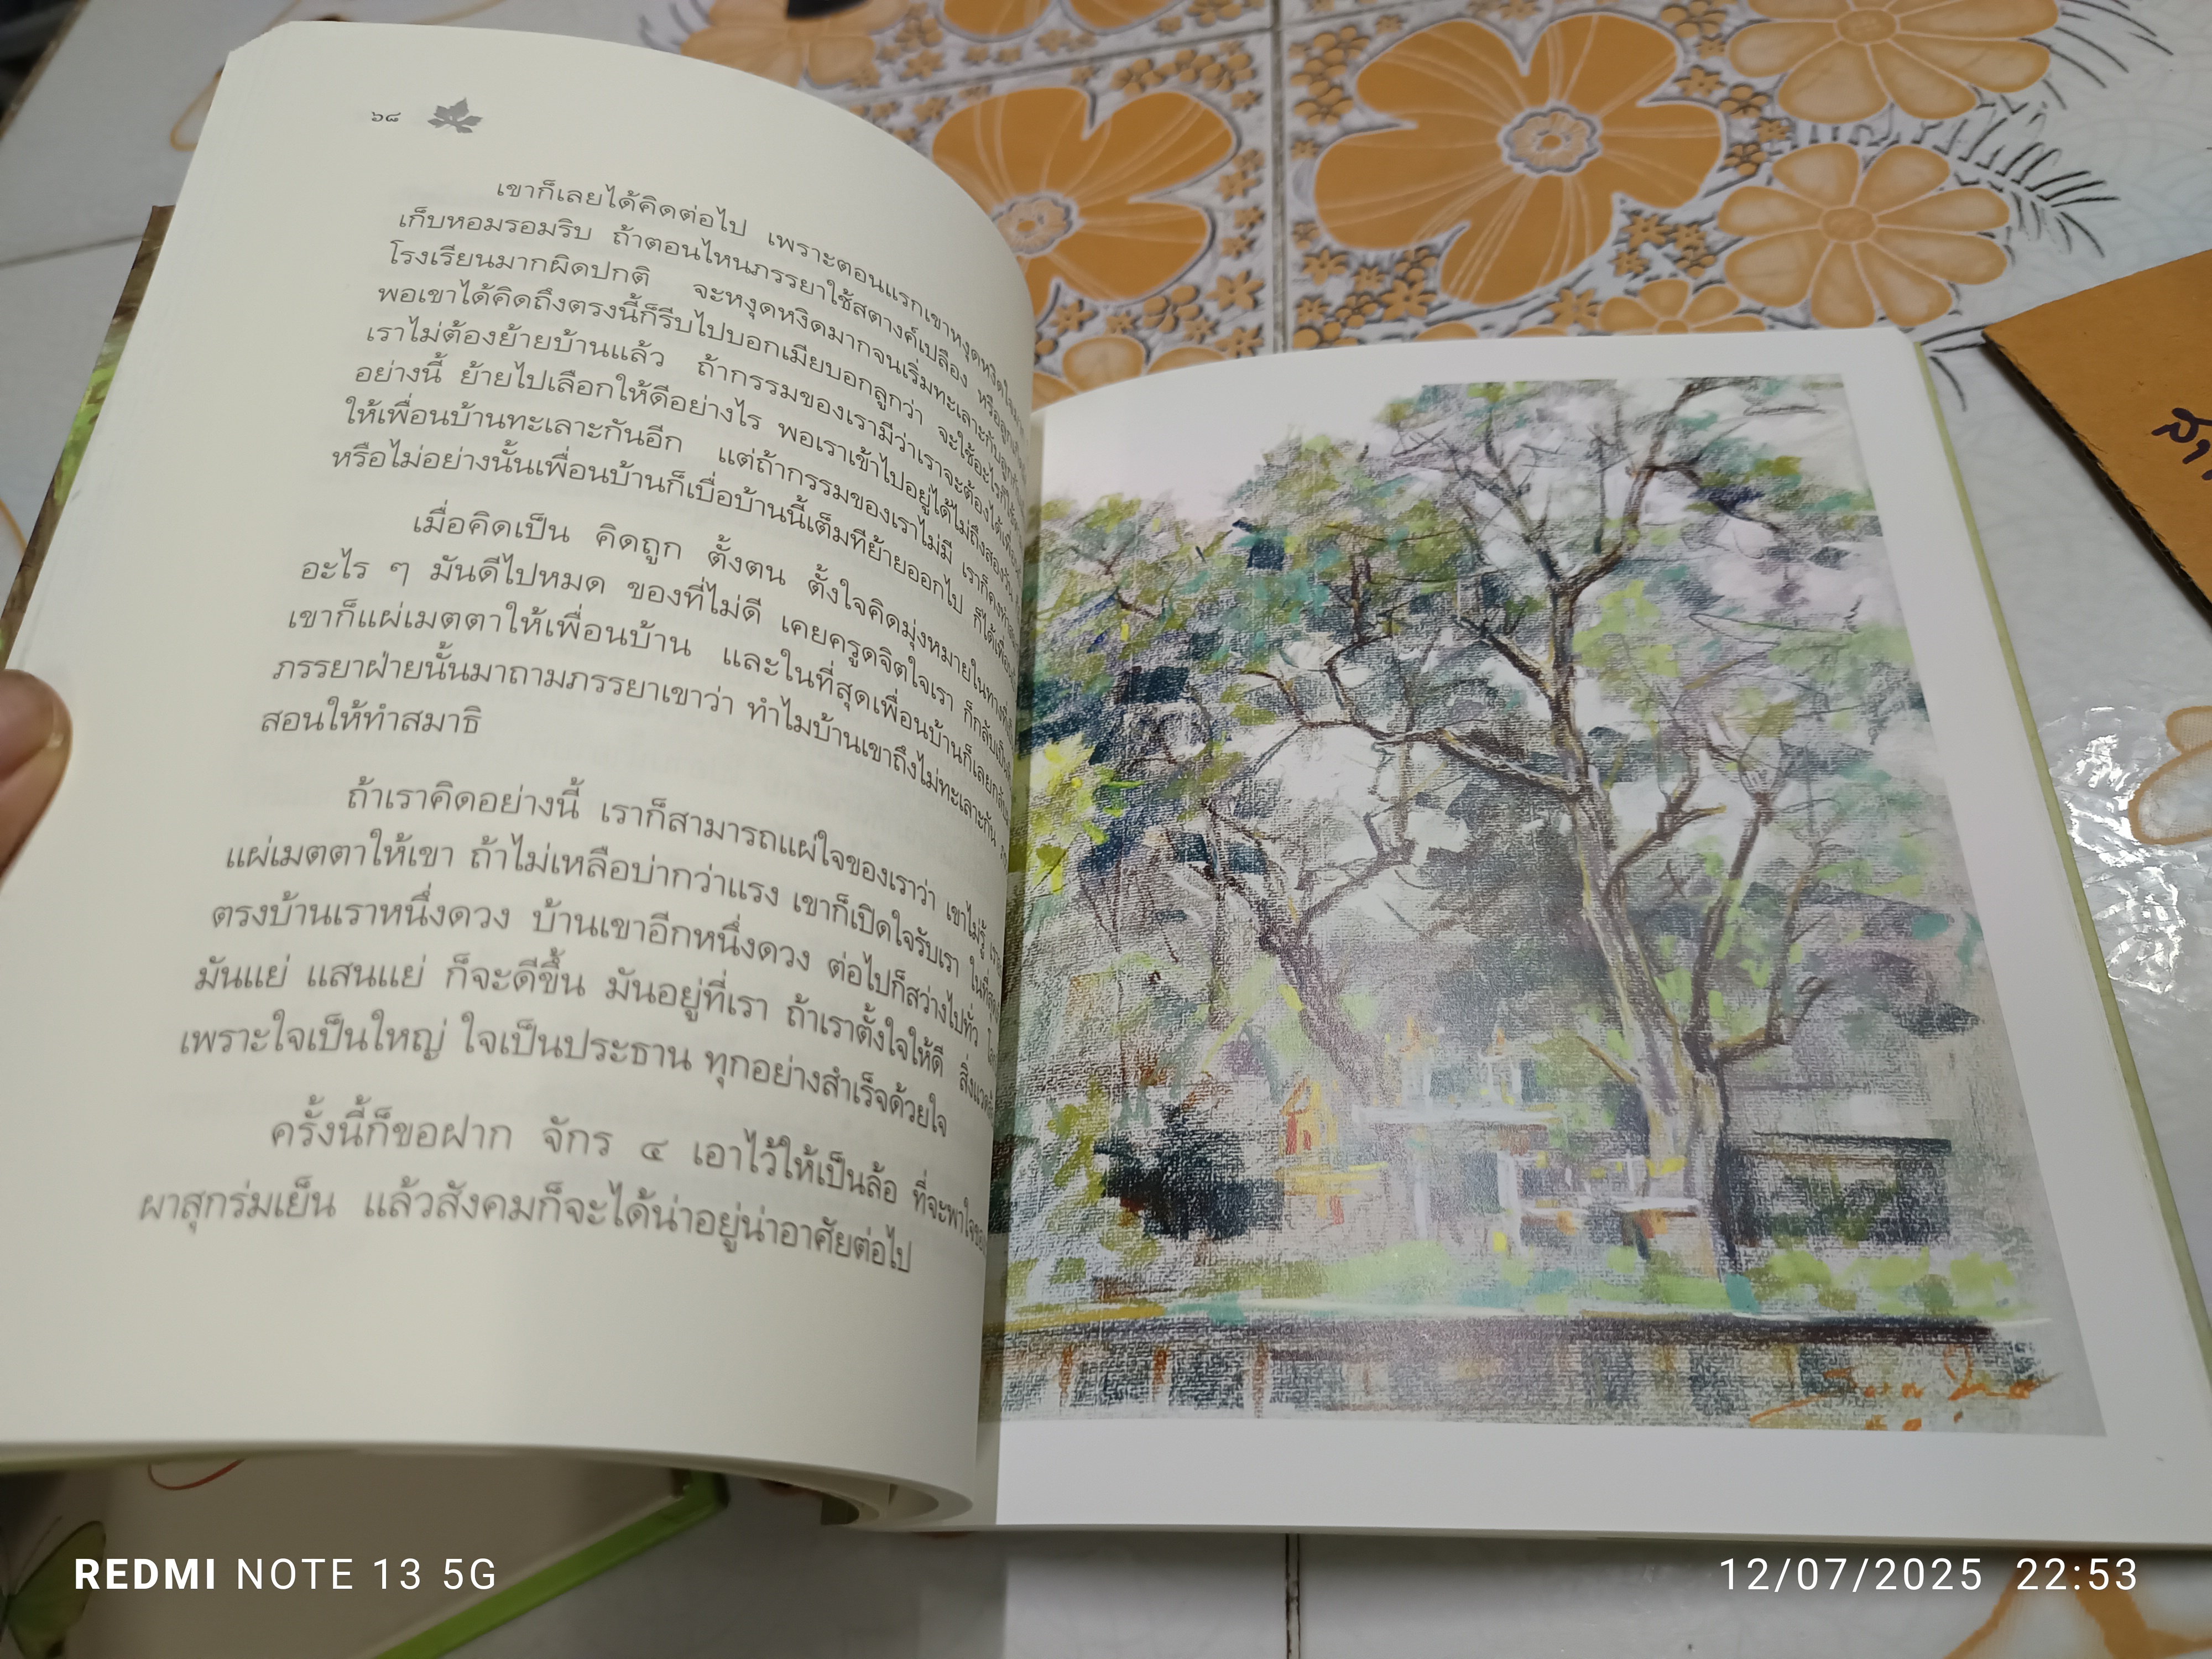 ๖๘
เขาก็เลยได้คิดต่อไป เพราะตอนแรกเขาหงุดหงิด
เก็บหอมรอมริบ ถ้าตอนไหนภรรยาใช้สตางค์เปลือง หรือลูก
โรงเรียนมากผิดปกติ จะหงุดหงิดมากจนเริ่มทะเลาะกับลูก
พอเขาได้คิดถึงตรงนี้ก็รีบไปบอกเมียบอกลูกว่า จะใช้อะไรก็ใช้
เราไม่ต้องย้ายบ้านแล้ว ถ้ากรรมของเรามีว่าเราจะต้องได้เพื่อน
อย่างนี้ ย้ายไปเลือกให้ดีอย่างไร พอเราเข้าไปอยู่ได้ไม่ถึงสองวัน
ให้เพื่อนบ้านทะเลาะกันอีก แต่ถ้ากรรมของเราไม่มี เราก็คง
หรือไม่อย่างนั้นเพื่อนบ้านก็เบื่อบ้านนี้เต็มทีย้ายออกไป ก็ได้เพื่อน
เมื่อคิดเป็น คิดถูก ตั้งตน ตั้งใจคิดมุ่งหมายในทางที่
อะไร ๆ มันดีไปหมด ของที่ไม่ดี เคยครูดจิตใจเรา ก็กลับเป็น
เขาก็แผ่เมตตาให้เพื่อนบ้าน และในที่สุดเพื่อนบ้านก็เลย
ภรรยาฝ่ายนั้นมาถามภรรยาเขาว่า ทำไมบ้านเขาถึงไม่ทะเลาะกัน
สอนให้ทำสมาธิ
ถ้าเราคิดอย่างนี้ เราก็สามารถแผ่ใจของเราว่า เขาไม่รู้
แผ่เมตตาให้เขา ถ้าไม่เหลือบ่ากว่าแรง เขาก็เปิดใจรับเรา ในที่สุด
ตรงบ้านเราหนึ่งดวง บ้านเขาอีกหนึ่งดวง ต่อไปก็สว่างไปทั่ว
มันแย่ แสนแย่ ก็จะดีขึ้น มันอยู่ที่เรา ถ้าเราตั้งใจให้ดี
เพราะใจเป็นใหญ่ ใจเป็นประธาน ทุกอย่างสำเร็จด้วยใจ
ครั้งนี้ก็ขอฝาก จักร ๔ เอาไว้ให้เป็นล้อ ที่จะพาใจ
ผาสุกร่มเย็น แล้วสังคมก็จะได้น่าอยู่น่าอาศัยต่อไป
REDMI NOTE 13 5G
12/07/2025 22:53